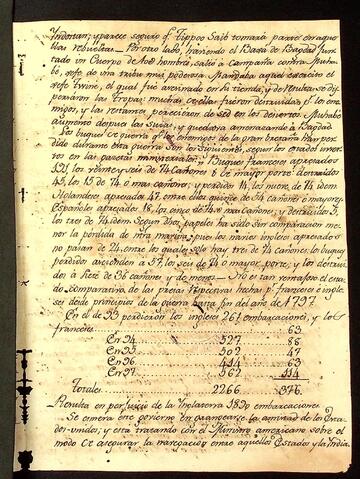 Indostan; y parece seguro q.e Tippoo Saib tomará parte en aque
llas rebueltas — Por otro lado, haviendo el Baxá de Bagdad jun
tado un Cuerpo de hombres, salió a Campaña contra
xefe de una tribu mas poderosa. Mandaba aquel exercito el
xefe el qual fué asesinado en su tienda, y de resultas se di
persaron las Tropas: muchas de ellas fueron destruidas p.r los ene
migos, y las restantes perecieron de sed en los desiertos.
aumentó despues las suyas, y quedava amenazando á Bagdad
Los buques de guerra q.e los enemigos de la gran bretaña han per
dido durante esta guerra son los siguientes, segun los estados inser
tos en las gazetas ministeriales; Buques franceses apresados
los veinte y seis de 74 Cañones ó de mayor porte: destruidos
45, los 15 de 74 o mas cañones; y perdidos 14, los nueve de 74 idem
Holandeses apresados 47, entre ellos quinze de 54 cañones o mayores
Españoles apresados 18, los cinco de 74 o mas Cañones; y destruidos 5,
los tres de 74 idem. Segun dhos papeles ha sido sin comparacion me
nor la pérdida de n̄ra marina; pues los navios ingleses apresados
no pasan de 24, entre los quales solo hay tres de 74 cañones: los buques
perdidos ascienden a 57, los seis de 74 o mayor porte; y los destrui
dos á siete de 36 cañones y de menos — No es tan el esta
do comparativo de las presas respectivas hechas p.r franceses e ingle
ses desde principios de la guerra hasta fin del año de 1797.
En el de 93 perdieron los ingleses 261 embarcaciones, y los
franceses ............ 63
En 94 ........ 527 ........ 88
En 95 ........ 502 ........ 47
En 96 ........ 414 ........ 63
En 97 ........ 562 ........ 114
Totales ........ 2266 ........ 376.
Resulta en perjuicio de la Inglaterra 1890 embarcaciones.
Se esmera este gobierno en la amistad de los Esta
dos-unidos; y esta tratando con el Ministro americano sobre el
modo de asegurar la navegacion entre aquellos Estados y la India.